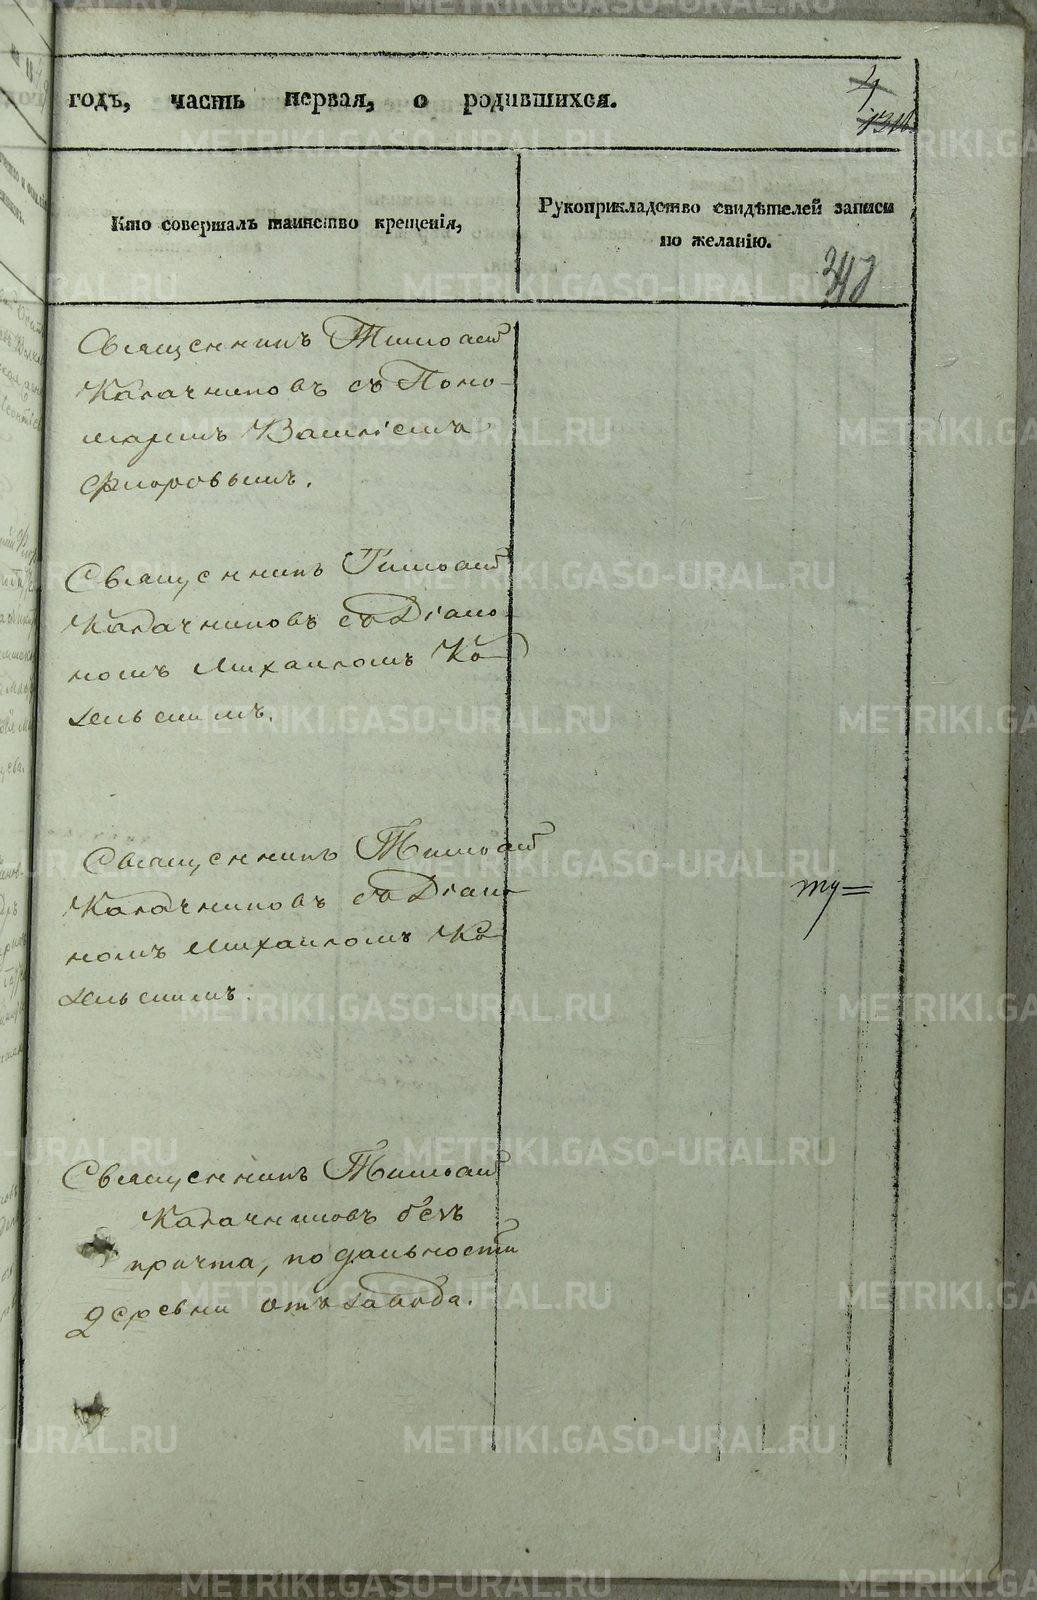 годъ, часть первая, о родившихся.
4
Кто совершалъ таинство крещенія,
Рукоприкладство свидѣтелей записи
по желанію.
Священникъ Тимоѳей
Калачниковъ съ Поно-
маремъ Василіемъ
Флоровымъ.
Священникъ Тимоѳей
Калачниковъ съ Діако-
номъ Михаиломъ Ко-
зельскимъ.
Священникъ Тимоѳей
Калачниковъ съ Діако-
номъ Михаиломъ Ко-
зельскимъ.
Священникъ Тимоѳей
Калачниковъ безъ
причта, по дальности
деревни отъ завода.
METRIKI.GASO-URAL.RU